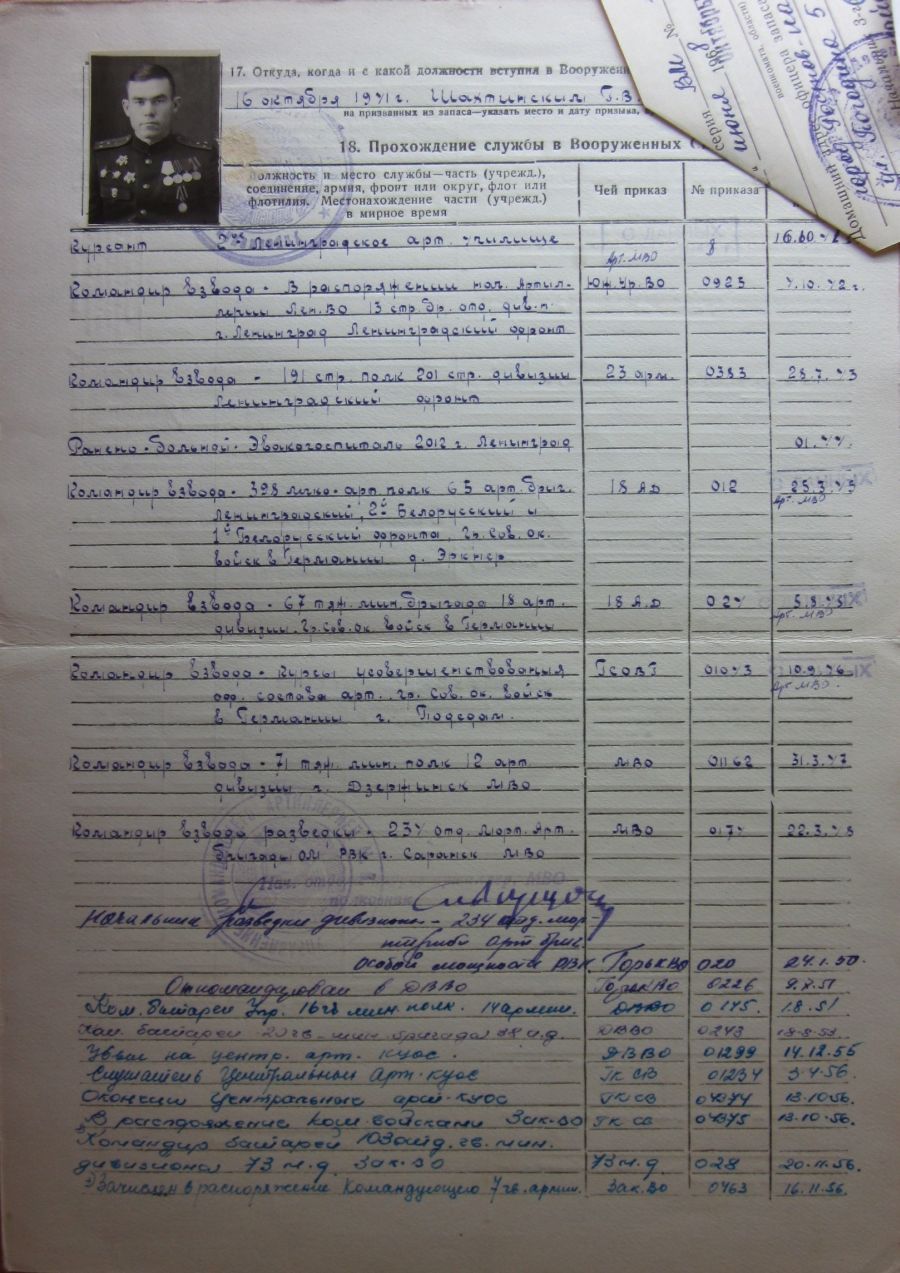 17. Откуда, когда и с какой должности вступил в Вооружен
16 октября 1941г. Шахтинским Г.В.
на призванных из запаса—указать место и дату призыва,
18. Прохождение службы в Вооруженных С
Должность и место службы—часть (учрежд.), соединение, армия, фронт или округ, флот или флотилия. Местонахождение части (учрежд.) в мирное время
Чей приказ
№ приказа
Курсант 2ое Ленинградское арт. училище 16.10.41
Арт. МВО
Командир взвода - В распоряжении нач. Артил- Юж.Ур.ВО 0925 7.10.42г.
лерии Лен.ВО 13 стр.бр. отд. див-н
г. Ленинград Ленинградский фронт
Командир взвода - 191 стр. полк 201 стр. дивизии 23 арм. 0383 28.7.43
Ленинградский фронт
Ранено-больной - Эвакогоспиталь 2012 г. Ленинград 01.44.
Командир взвода - 398 легко-арт.полк 65 арт.бриг. 18 АД 012 25.3.45
Ленинградский, 2й Белорусский и Арт. МВО
1й Белорусский фронта, Гр.Сов.ок.
войск в Германии д. Эркнер
Командир взвода - 67 тяж.мин.бригада 18 арт. 18 А.Д 024 5.8.45
дивизии. Гр.сов.ок войск в Германии Арт. МВО
Командир взвода - Курсы усовершенствования ГСОВГ 01043 10.9.46
оф. состава арт. Гр. Сов. ок. войск Арт МВО
в Германии г. Потсдам.
Командир взвода - 71 тяж. мин. полк 12 арт МВО 01162 31.3.47
дивизии г. Дзержинск МВО
Командир взвода разведки - 234 отд. морт. Арт. МВО 0174 22.3.48
бригады ОМ РВК г. Саранск МВО
Начальник разведки дивизиона - 234 отд. мор-
тирной арт бриг
особой мощности РВК. ГорькВО 020 24.1.50.
Откомандирован в ДВВО ГорькВО 0226
Ком. батареи Упр. 16 гв мин. полк. 14 армии. ДВВО 0175 1.8.51
Ком. батареи 20 гв. мин. бригада ДВВО 0243
Убыл на центр. арт. КУОС. ДВВО 01299 14.12.55
Слушатель Центральных Арт. КУОС ГК СВ 01234 3.4.56.
Окончил Центральные арт. КУОС ГК СВ 04374 13.10.56.
В распоряжение ком. войсками Зак.ВО ГК СВ 04375 13.10.56.
Командир батареи гв. мин.
дивизиона 73 м.д. Зак.ВО 73 м.д. 028 20.11.56.
Зачислен в распоряжение Командующего 7 гв. армии. Зак.ВО 0463 16.11.56.
ВМ №
серия
июня 196
военкомата, области)
офицера запаса
Домашний адрес